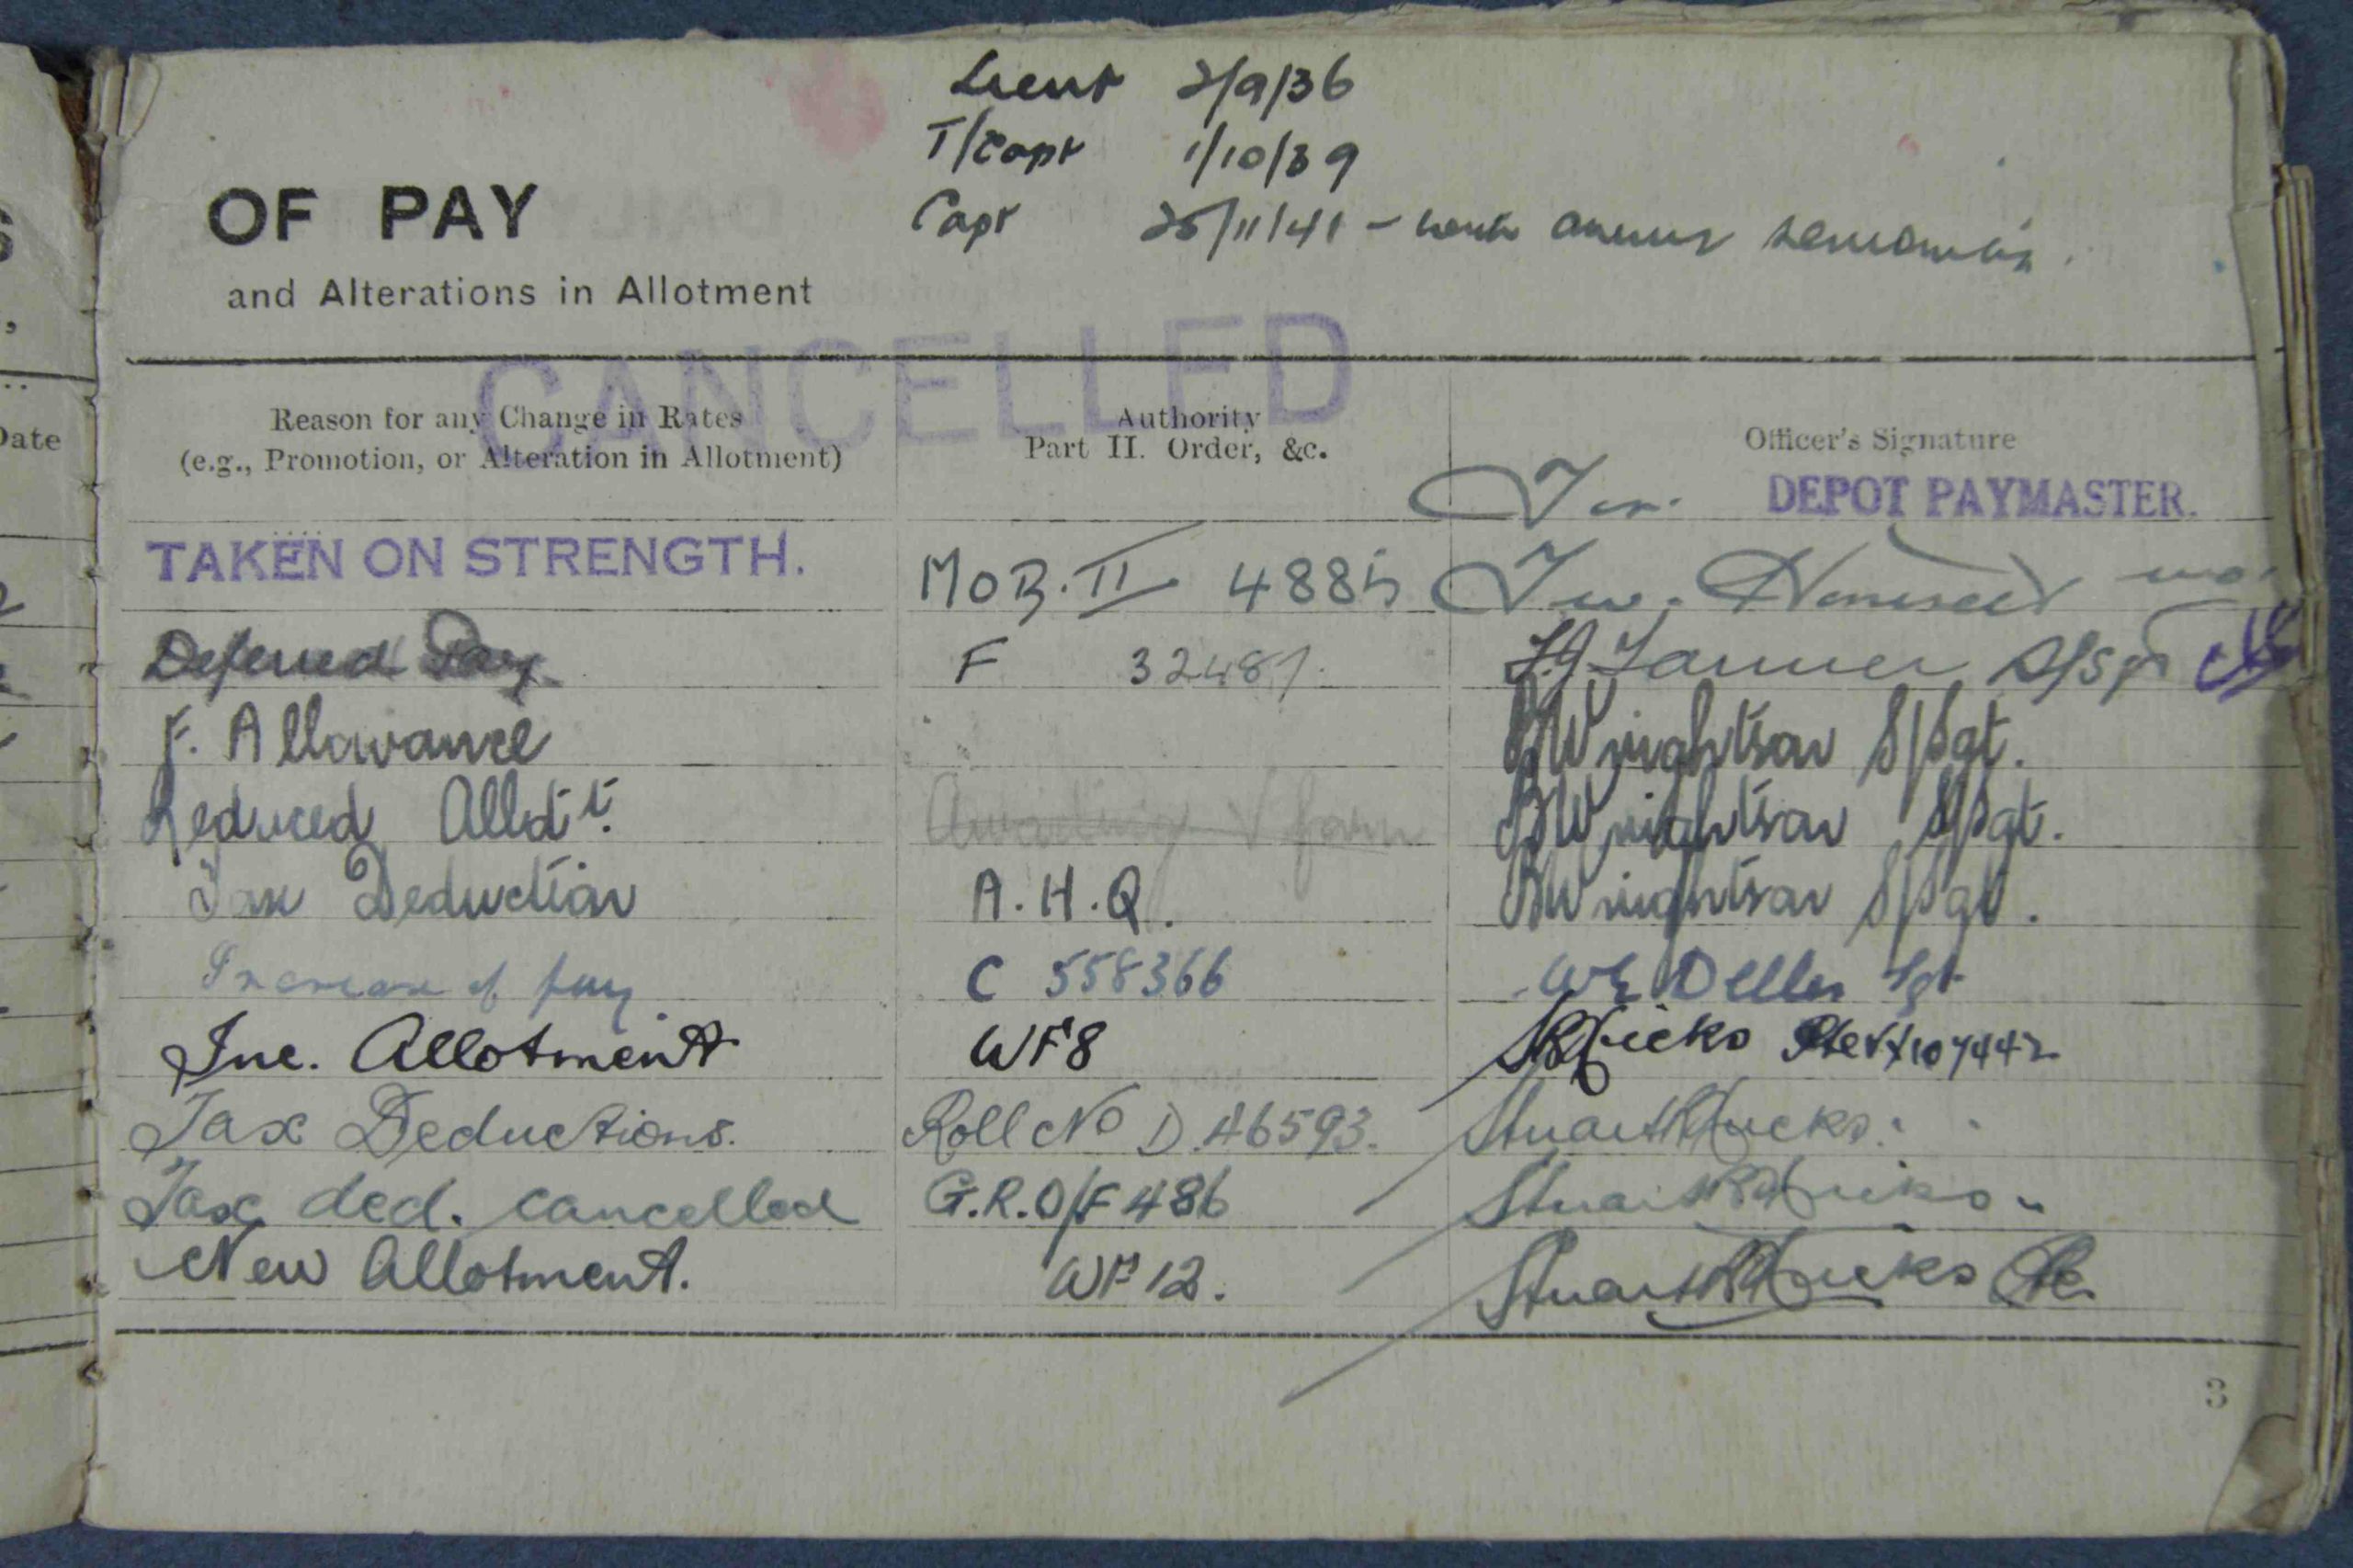 Lieut 2/9/36
T/Capt 1/10/39
Capt 25/11/41 - with
OF PAY
and Alterations in Allotment
CANCELLED
Date
Reason for any Change in Rates
(e.g., Promotion, or Alteration in Allotment)
Authority
Part II. Order, &c.
Officer's Signature
DEPOT PAYMASTER.
TAKEN ON STRENGTH. MOB. II 4885
Deferred Pay F 32487. Tanner S/Sgt
F. Allowance S/Sgt.
Reduced Allot't. Awaiting form S/Sgt.
Tax Deduction A.H.Q. S/Sgt.
Increase of pay. C 558366 Sgt
Inc. Allotment WF8 Hicks Pte VX107442
Tax Deductions. Roll No D.A6593. Stuart Hicks.
Tax ded. cancelled G.R.O/F 486 Stuart Hicks
New Allotment. WF 12. Stuart Hicks Pte.
3